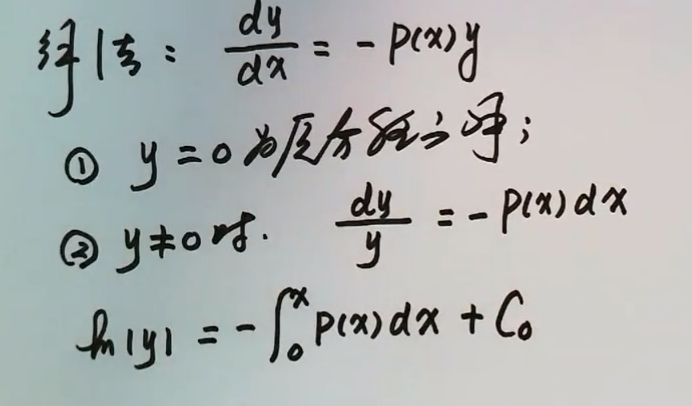 解法: dy/dx = -P(x)y
① y=0为原方程之解;
② y≠0时. dy/y = -P(x)dx
ln|y| = -∫₀ˣ P(x)dx + C₀